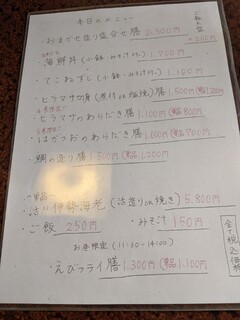 本日のメニュー
・おまかせ造り盛合せ膳 2,500円
・海鮮丼(小鉢・みそ汁付) 1,700円
・てこねずし(小鉢・みそ汁付) 1,100円
・ヒラマサ切身(煮付 or 塩焼)膳 1,500円(単品)1,200円
・ヒラマサのあらだき膳 1,100円(単品)800円
・はがつおのあらだき膳 1,000円(単品)700円
・鯛の造り膳 1,500円(単品)1,200円
単品
・活〆伊勢海老(活造り or 焼き) 5,800円
・ご飯 250円 ・みそ汁 150円
お昼限定(11:30~14:00)
・えびフライ膳 1,300円(単品)1,100円
ご飯大盛
+200円
全て税込価格